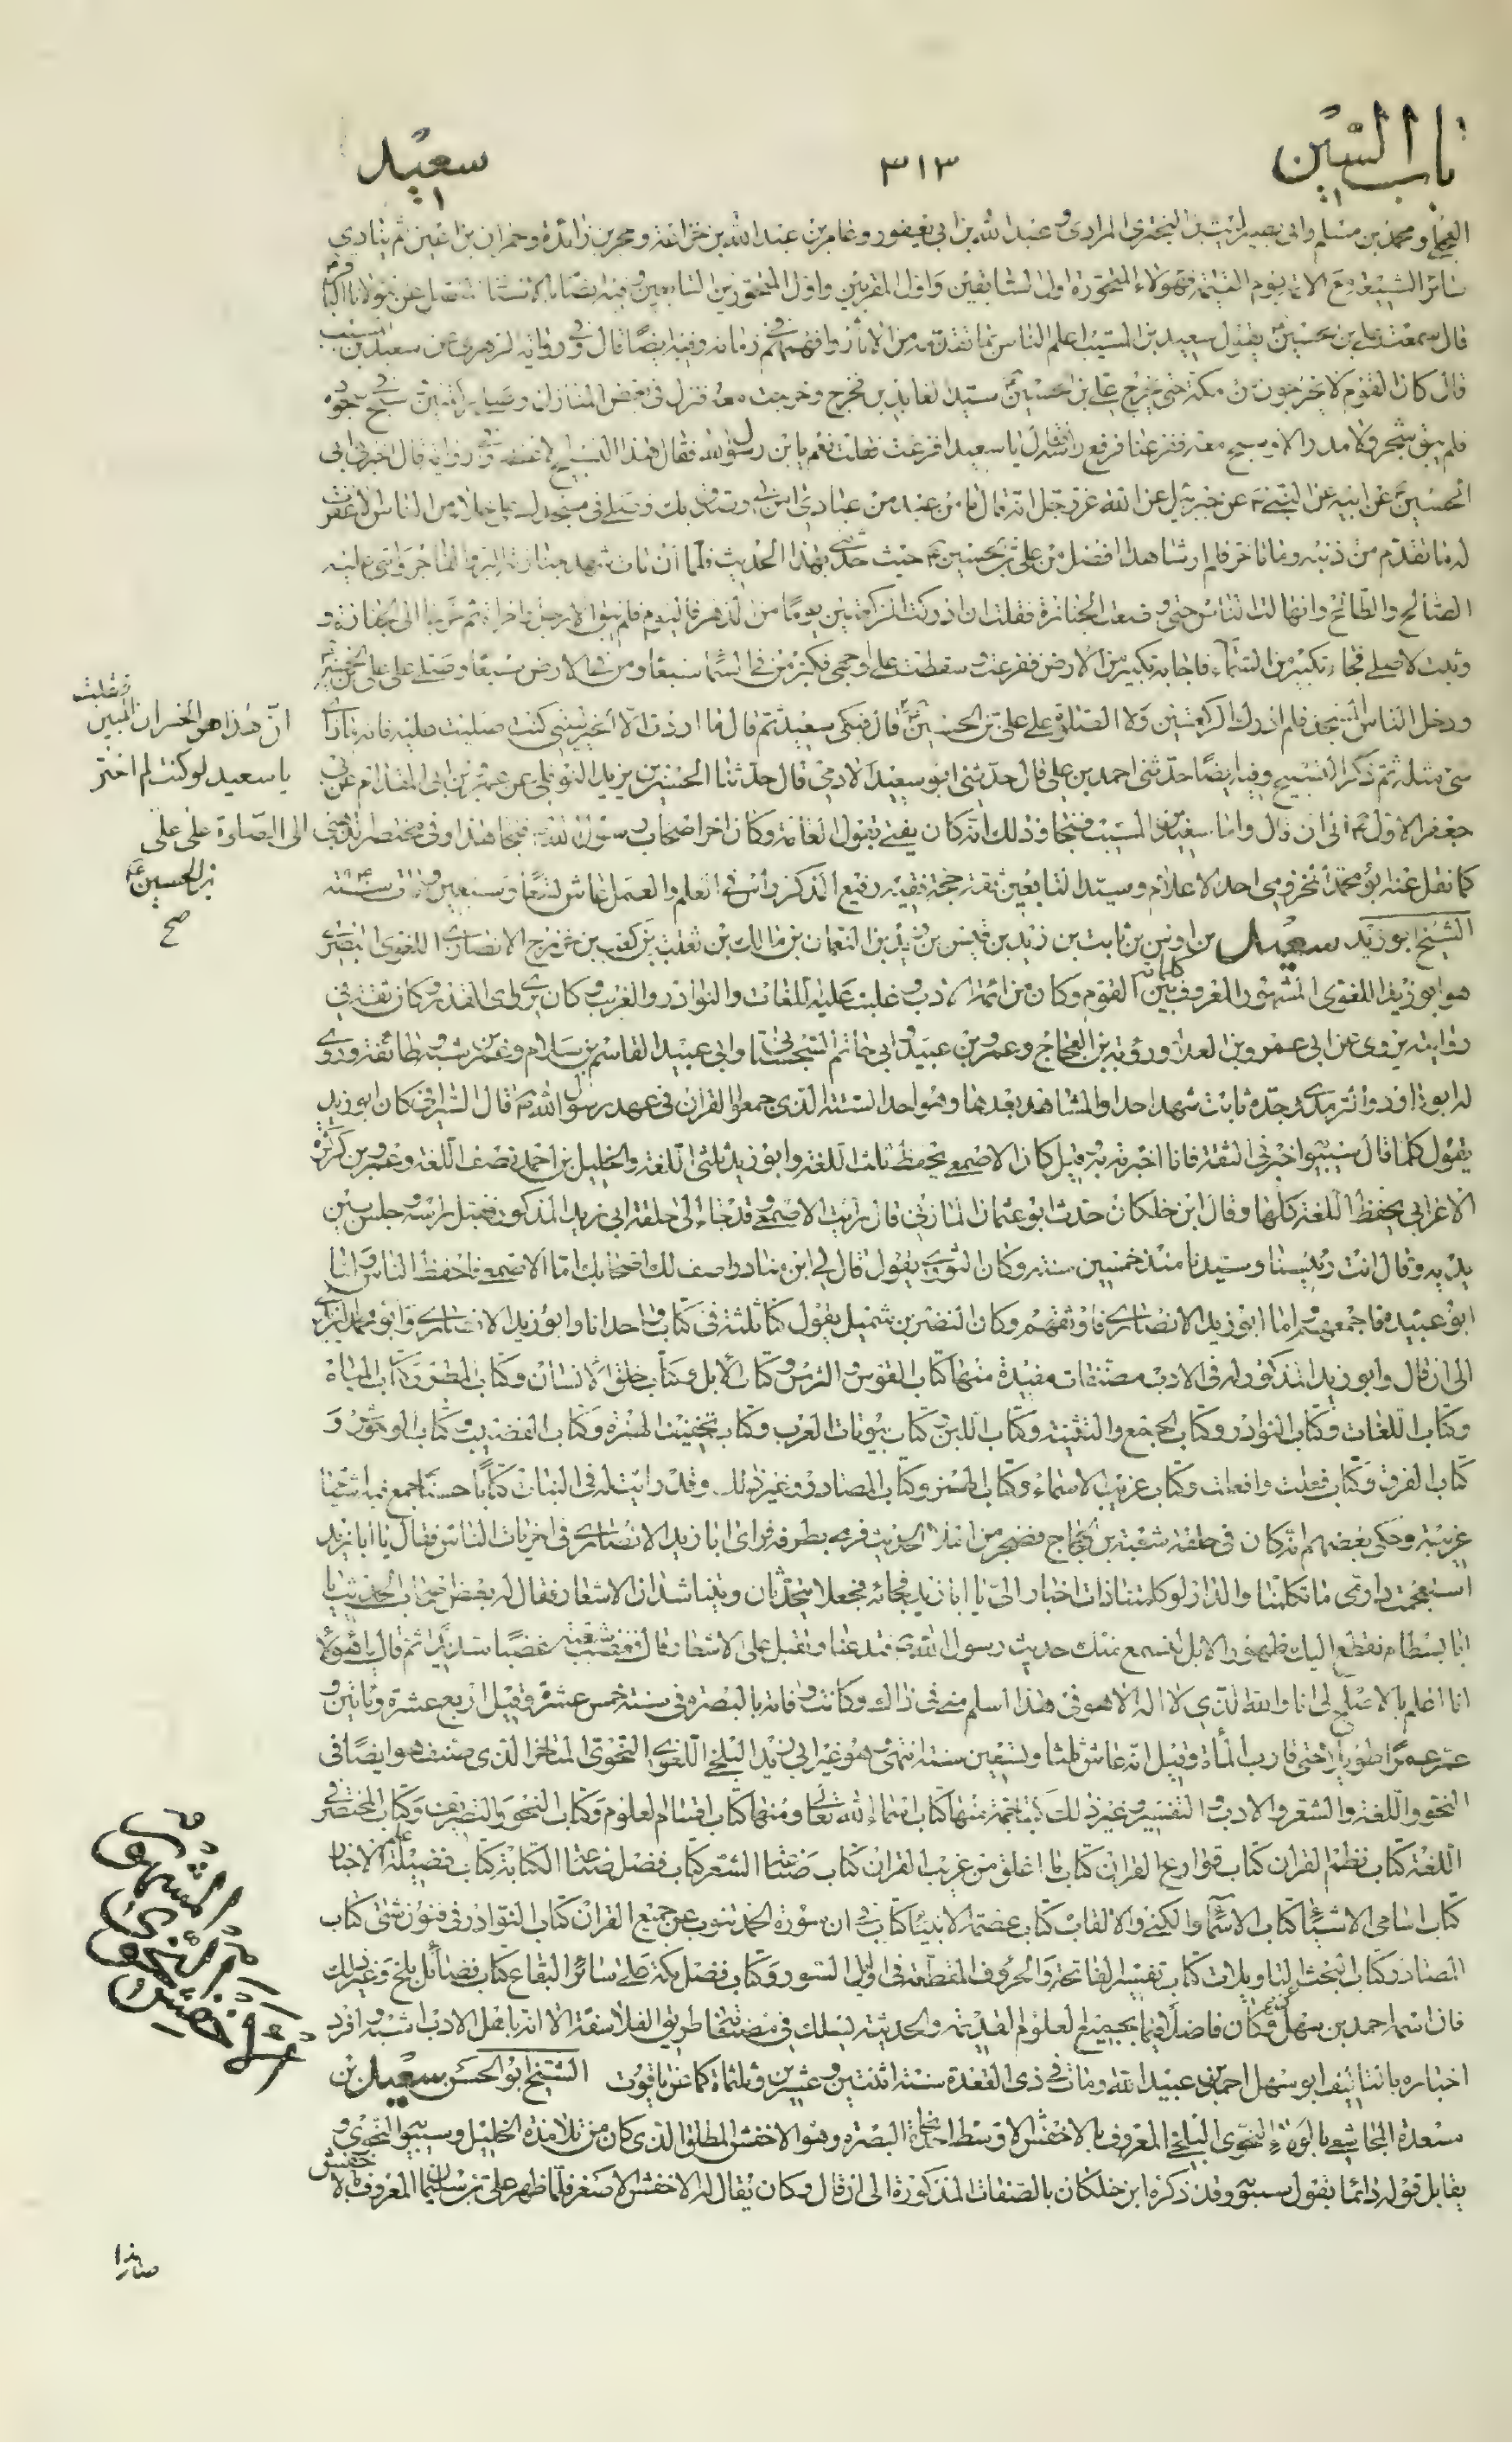 باب السين
٣١٣
سعيد
العجلي ومحمد بن مسلم وابى بصير ليث بن البختري المرادى وعبد الله بن ابى يعفور وعامر بن عبد الله بن خزاعة وحجر بن زائدة وحمران بن اعين ثم ينادى
سائر الشيعة مع الائمة يوم القيمة فهؤلاء المتحورة اول السابقين واول المقربين واول المتحورين من التابعين وفيه ايضا بالاسناد
قال سمعت على بن حسين يقول سعيد بن المسيب اعلم الناس بما تقدمه من الاثار وافهمهم فى زمانه وفيه ايضا قال وفى رواية الزهرى عن سعيد بن المسيب
قال كان القوم لا يخرجون من مكة حتى يخرج على بن الحسين سيد العابدين فخرج وخرجت معه فنزل فى بعض المنازل وصلى ركعتين سبح فى سجوده
فلم يبق شجر ولا مدر الا سبح معه ففزعنا فرفع راسه قال يا سعيد افزعت فقلت نعم يابن رسول الله فقال هذا التسبيح الاعظم وفى رواية قال اخبرنى ابى
الحسين عن ابيه عن النبى عن جبرئيل عن الله عز وجل انه قال ما من عبد من عبادى امن بى وصدق بك وصلى فى مسجدك على خلاء من الناس الا غفرت
له ما تقدم من ذنبه وما تاخر فلم ار شاهدا افضل من على بن الحسين حيث حدثنى بهذا الحديث فلما ان مات شهد جنازته البر والفاجر واثنى عليه
الصالح والطالح وانهالت الناس حتى وضعت الجنازة فقلت ان ادركت الركعتين يوما من الدهر فاليوم فلم يبق الا رجل وامراة ثم خرجا الى الجنازة و
وثبت لاصلى فجاء تكبير من السماء فاجابه تكبير من الارض ففزعت وسقطت على وجهى فكبر من فى السماء سبعا ومن فى الارض سبعا وصلى على على بن الحسين
ودخل الناس المسجد فلم ادرك الركعتين ولا الصلوة على على بن الحسين قال فبكى سعيد ثم قال ما اردت الا الخير ليتنى كنت صليت عليه فانه ما راى
مثله ثم ذكر التسبيح وفيه ايضا حدثنى احمد بن على قال حدثنى ابو سعيد الادمى قال حدثنا الحسين بن يزيد النوفلى عن عمرو بن ابى المقدام عن ابى
جعفر الاول الى ان قال واما سعيد بن المسيب فنجا وذلك انه كان يفتى بقول العامة وكان اخر اصحاب رسول الله فنجا هذا وفى مختصر الذهبى
كما نقل عنه ابو محمد المخزومى احد الاعلام وسيد التابعين ثقة حجة فقيه رفيع الذكر راس فى العلم والعمل عاش تسعا وسبعين ومات سنة ٩٤
الشيخ ابو زيد سعيد بن اوس بن ثابت بن زيد بن قيس بن زيد بن النعمان بن مالك بن ثعلبة بن كعب بن خزرج الانصارى اللغوى البصرى
هو ابو زيد اللغوى المشهور المعروف بين القوم وكان من ائمة الادب وغلبت عليه اللغات والنوادر والغريب وكان يرى راى القدر وكان ثقة فى
روايته يروى عن ابى عمرو بن العلا ورؤبة بن العجاج وعمرو بن عبيد وابى حاتم السجستانى وابى عبيد القاسم بن سلام وعمر بن شبه وطائفة وروى
له ابو داود والترمذى وجده ثابت شهد احدا والمشاهد بعدها وهو احد الستة الذى جمعوا القران فى عهد رسول الله قال السيرافى كان ابو زيد
يقول كلما قال سيبويه اخبرنى الثقة فانا اخبرته به وقيل كان الاصمعى يحفظ ثلث اللغة وابو زيد ثلثى اللغة والخليل بن احمد نصف اللغة وعمرو بن كركرة
الاعرابى يحفظ اللغة كلها وقال ابن خلكان حدث ابو عثمان المازنى قال رايت الاصمعى وقد جاء الى حلقة ابى زيد المذكور فقبل راسه وجلس بين
يديه وقال انت رئيسنا وسيدنا منذ خمسين سنة وكان الثورى يقول قال لى ابن مناذر اصف لك اصحابك اما الاصمعى فاحفظ الناس واما
ابو عبيدة فاجمعهم واما ابو زيد الانصارى فاوثقهم وكان النضر بن شميل يقول كنا ثلثة فى كتاب واحد انا وابو زيد الانصارى وابو محمد اليزيدى
الى ان قال وابو زيد المذكور له فى الادب مصنفات مفيدة منها كتاب القوس والترس وكتاب الابل وكتاب خلق الانسان وكتاب المطر وكتاب المياه
وكتاب اللغات وكتاب النوادر وكتاب الجمع والتثنية وكتاب اللبن كتاب بيوتات العرب وكتاب تخفيف الهمزة وكتاب القضيب وكتاب الوحوش و
كتاب الفرق وكتاب فعلت وافعلت وكتاب غريب الاسماء وكتاب الهمز وكتاب المصادر وغير ذلك وقد رايت له فى النبات كتابا حسنا جمع فيه اشياء
غريبة وحكى بعضهم انه كان فى حلقة شعبة بن الحجاج فضجر من املاء الحديث فرمى بطرفه فراى ابا زيد الانصارى فى اخريات الناس فقال يا ابا زيد
استعجمت دار مى ما تكلمنا والدار لو كلمتنا ذات اخبار الى يا ابا زيد فجائه فجعلا يتحدثان ويتناشدان الاشعار فقال له بعض اصحاب الحديث يا
ابا بسطام نقطع اليك ظهور الابل لنسمع منك حديث رسول الله فتدعنا وتقبل على الاشعار قال فغضب شعبة غضبا شديدا ثم قال يا هؤلاء
انا اعلم بالاصلح لى انا والله الذى لا اله الا هو فى هذا اسلم منى فى ذاك وكانت وفاته بالبصره فى سنة خمس عشرة وقيل اربع عشرة وماتين و
عمر عمرا طويلا حتى قارب المأة وقيل انه عاش ثلثا وتسعين سنة انتهى وهو غير ابى زيد البلخى اللغوى النحوى المتاخر الذى صنف هو ايضا فى
النحو واللغة والشعر والادب والتفسير وغير ذلك كتبا جمة منها كتاب اسماء الله تعالى ومنها كتاب اقسام العلوم وكتاب النحو والتصريف وكتاب المختصر فى
اللغة كتاب نظم القران كتاب قوارع القران كتاب ما اغلق من غريب القران كتاب صناعة الشعر كتاب فضل صناعة الكتابة كتاب فضيلة علم الاخبار
كتاب اسامى الاشياء كتاب الاسماء والكنى والالقاب كتاب عصمة الانبياء كتاب فى ان سورة الحمد تنوب عن جميع القران كتاب النوادر فى فنون شتى كتاب
المصادر كتاب البحث التاويلات كتاب تفسير الفاتحة والحروف المقطعة فى اوايل السور وكتاب فضل مكة على سائر البقاع كتاب فضائل بلخ وغير ذلك
فان اسمه احمد بن سهل وكان فاضلا قيما بجميع العلوم القديمة والحديثة يسلك فى مصنفاته طريق الفلاسفة الا انه باهل الادب اشبه وافرد
اخباره بالتاليف ابو سهل احمد بن عبيد الله ومات فى ذى القعدة سنة اثنتين وعشرين وثلثماة كما عن ياقوت الشيخ ابو الحسن سعيد بن
مسعدة المجاشعى بالولاء النحوى البلخى المعروف بالاخفش الاوسط احد نحاة البصره وهو الاخفش المطلق الذى كان من تلامذة الخليل وسيبويه النحوى و
يقابل قوله دائما بقول سيبويه وقد ذكره ابن خلكان بالصفات المذكورة الى ان قال وكان يقال له الاخفش الاصغر فلما ظهر على بن سليمان المعروف بالاخفش
فقلت
ان هذا هو الخسران المبين
يا سعيد لو كنت لم اختر
الى الصلوة على على
بن الحسين
صح
صار هذا